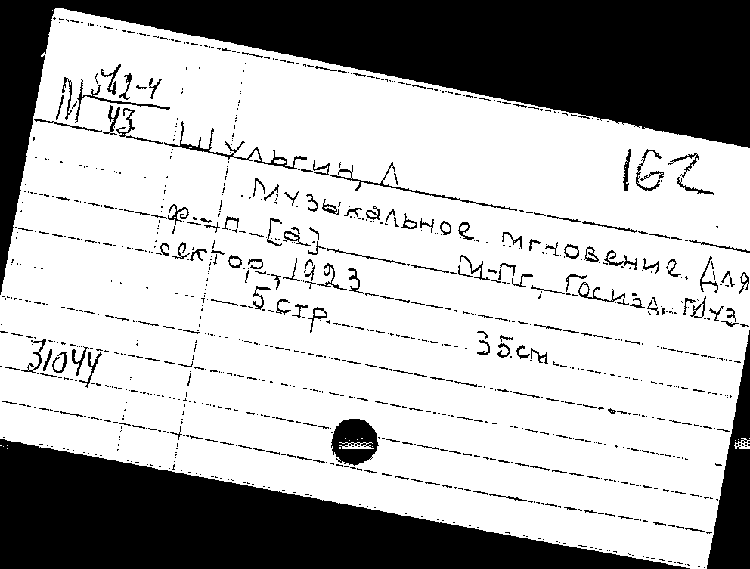 М 562-4
43
162
Шульгин, Л
Музыкальное мгновение. Для
ф-п [а] М-Пг., Госизд. Муз.
сектор, 1923
5 стр. 35 см.
31044